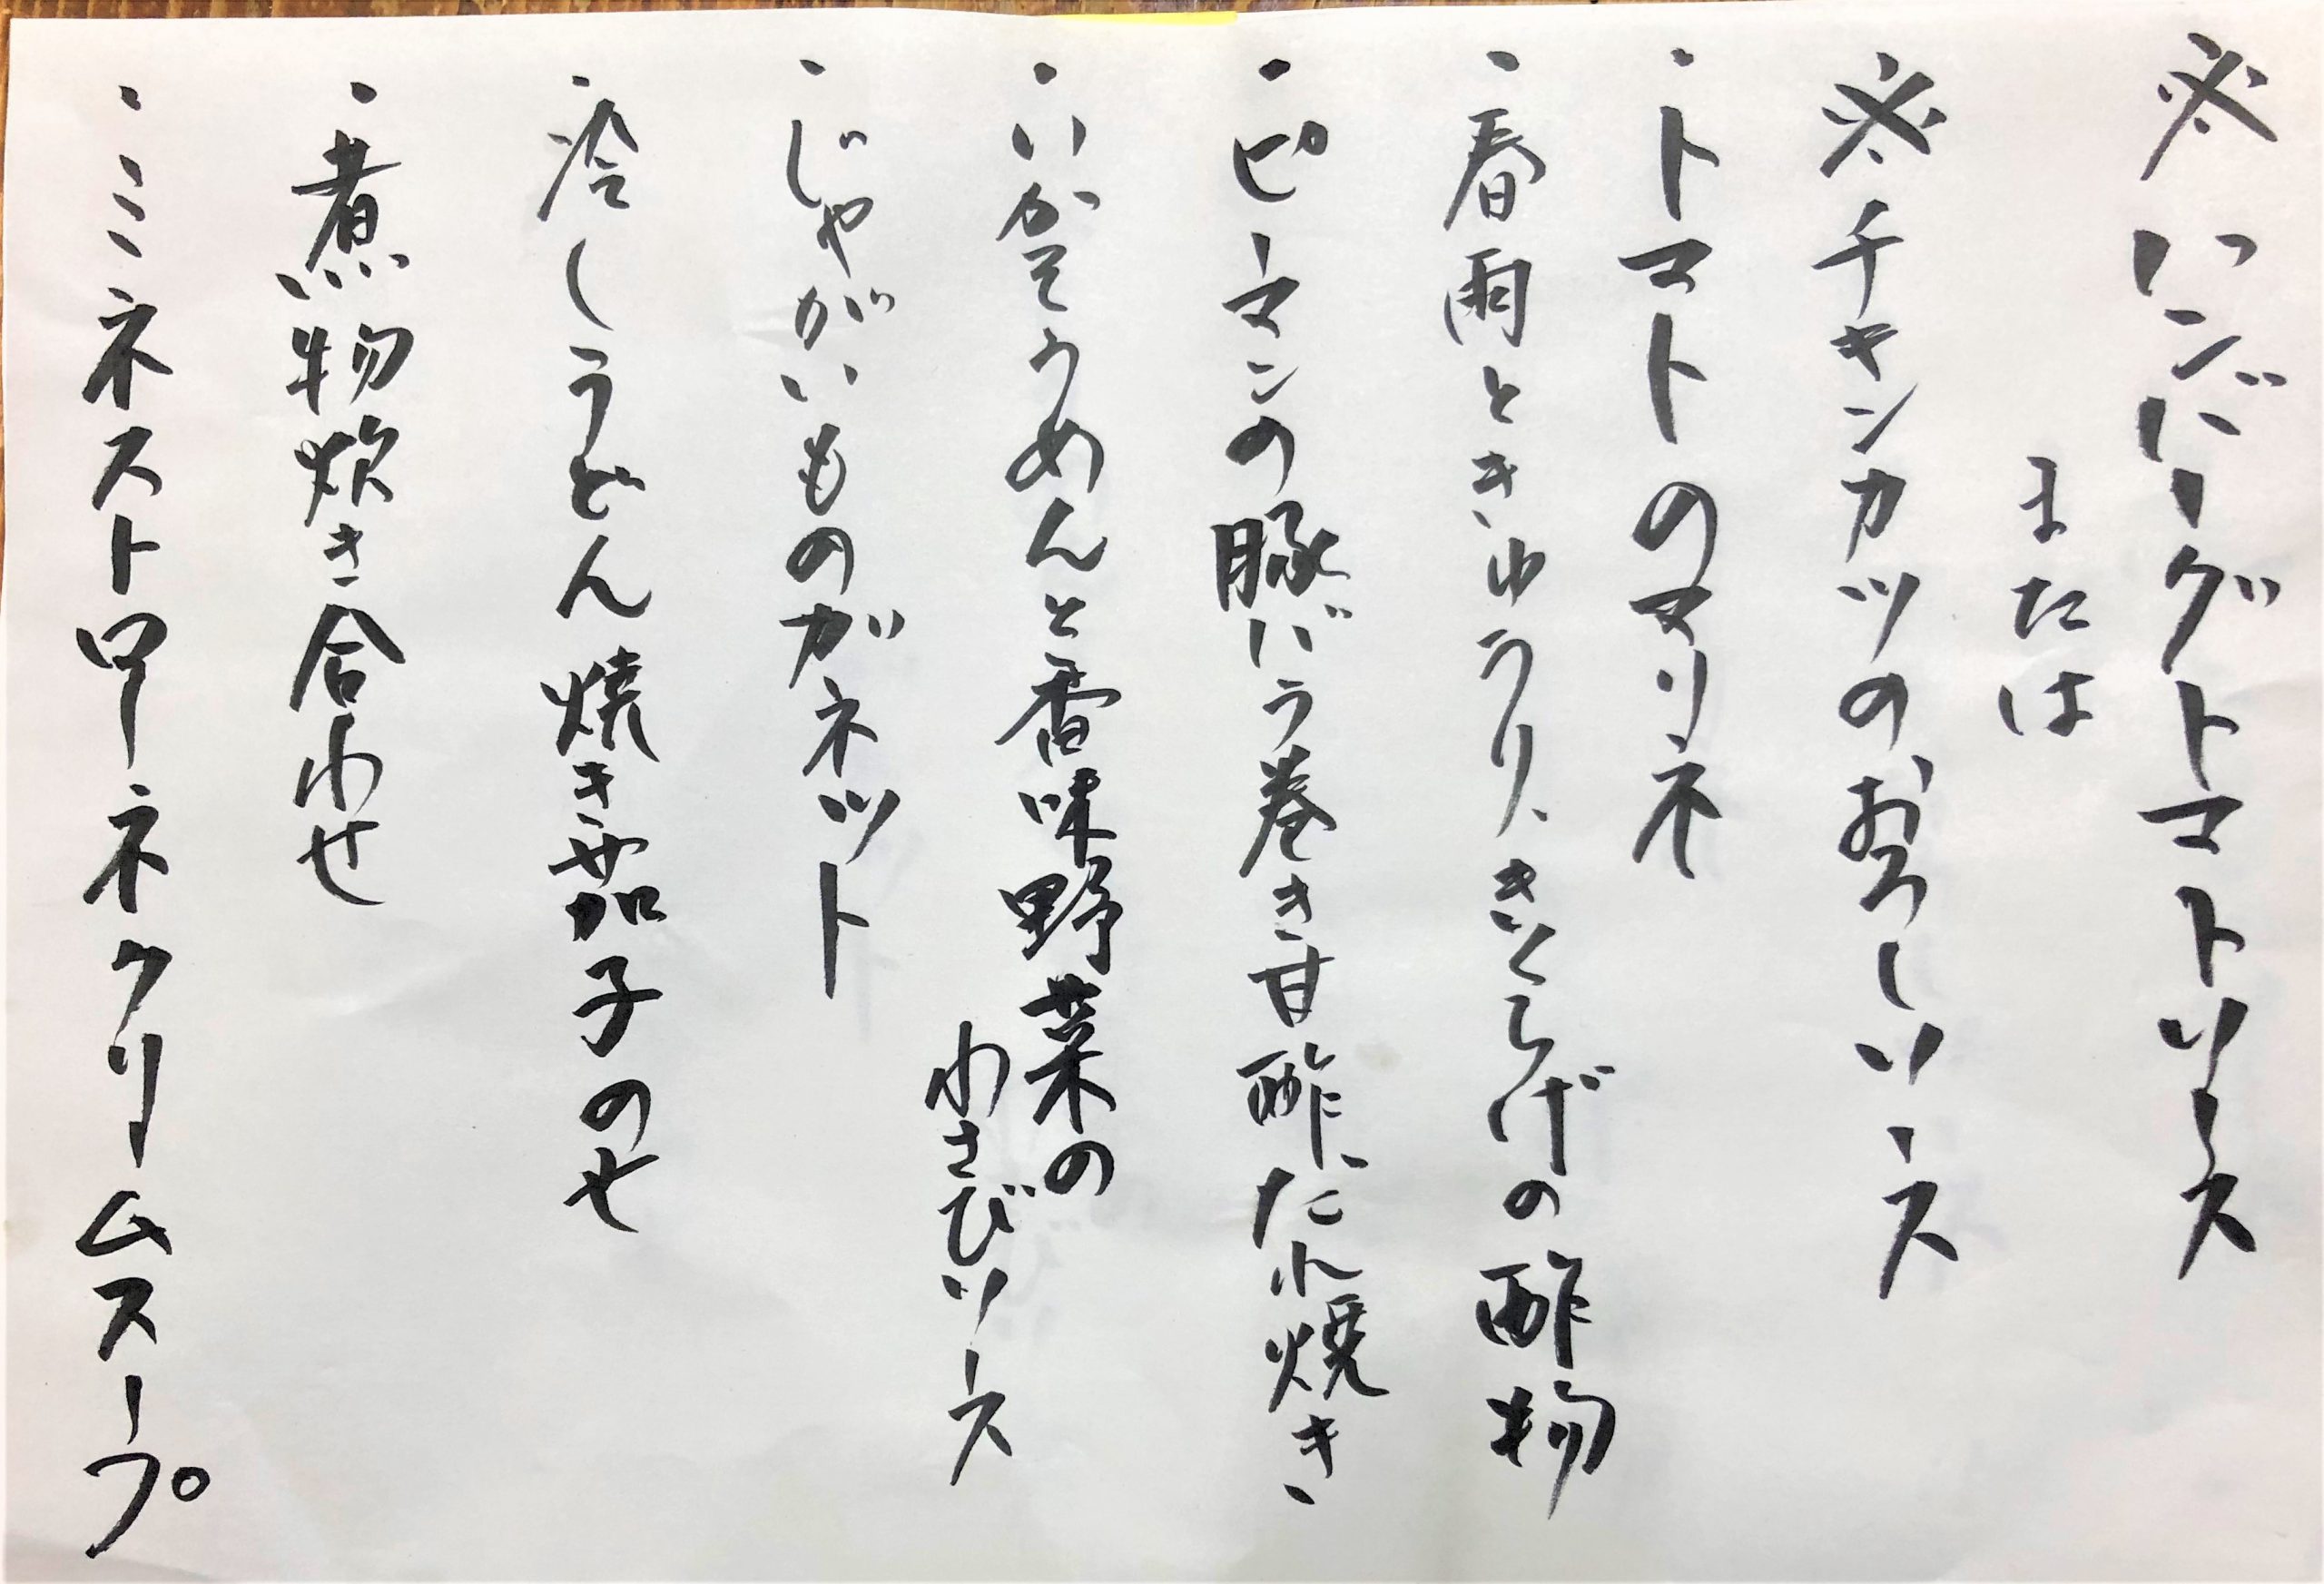 ※ハンバーグトマトソース
または
※チキンカツのおろしソース
・トマトのマリネ
・春雨ときゅうり、きくらげの酢物
・ピーマンの豚バラ巻き甘酢たれ焼き
・いかそうめんと香味野菜の
わさびソース
・じゃがいものガネット
・冷しうどん焼き茄子のせ
・煮物炊き合わせ
・ミネストローネクリームスープ